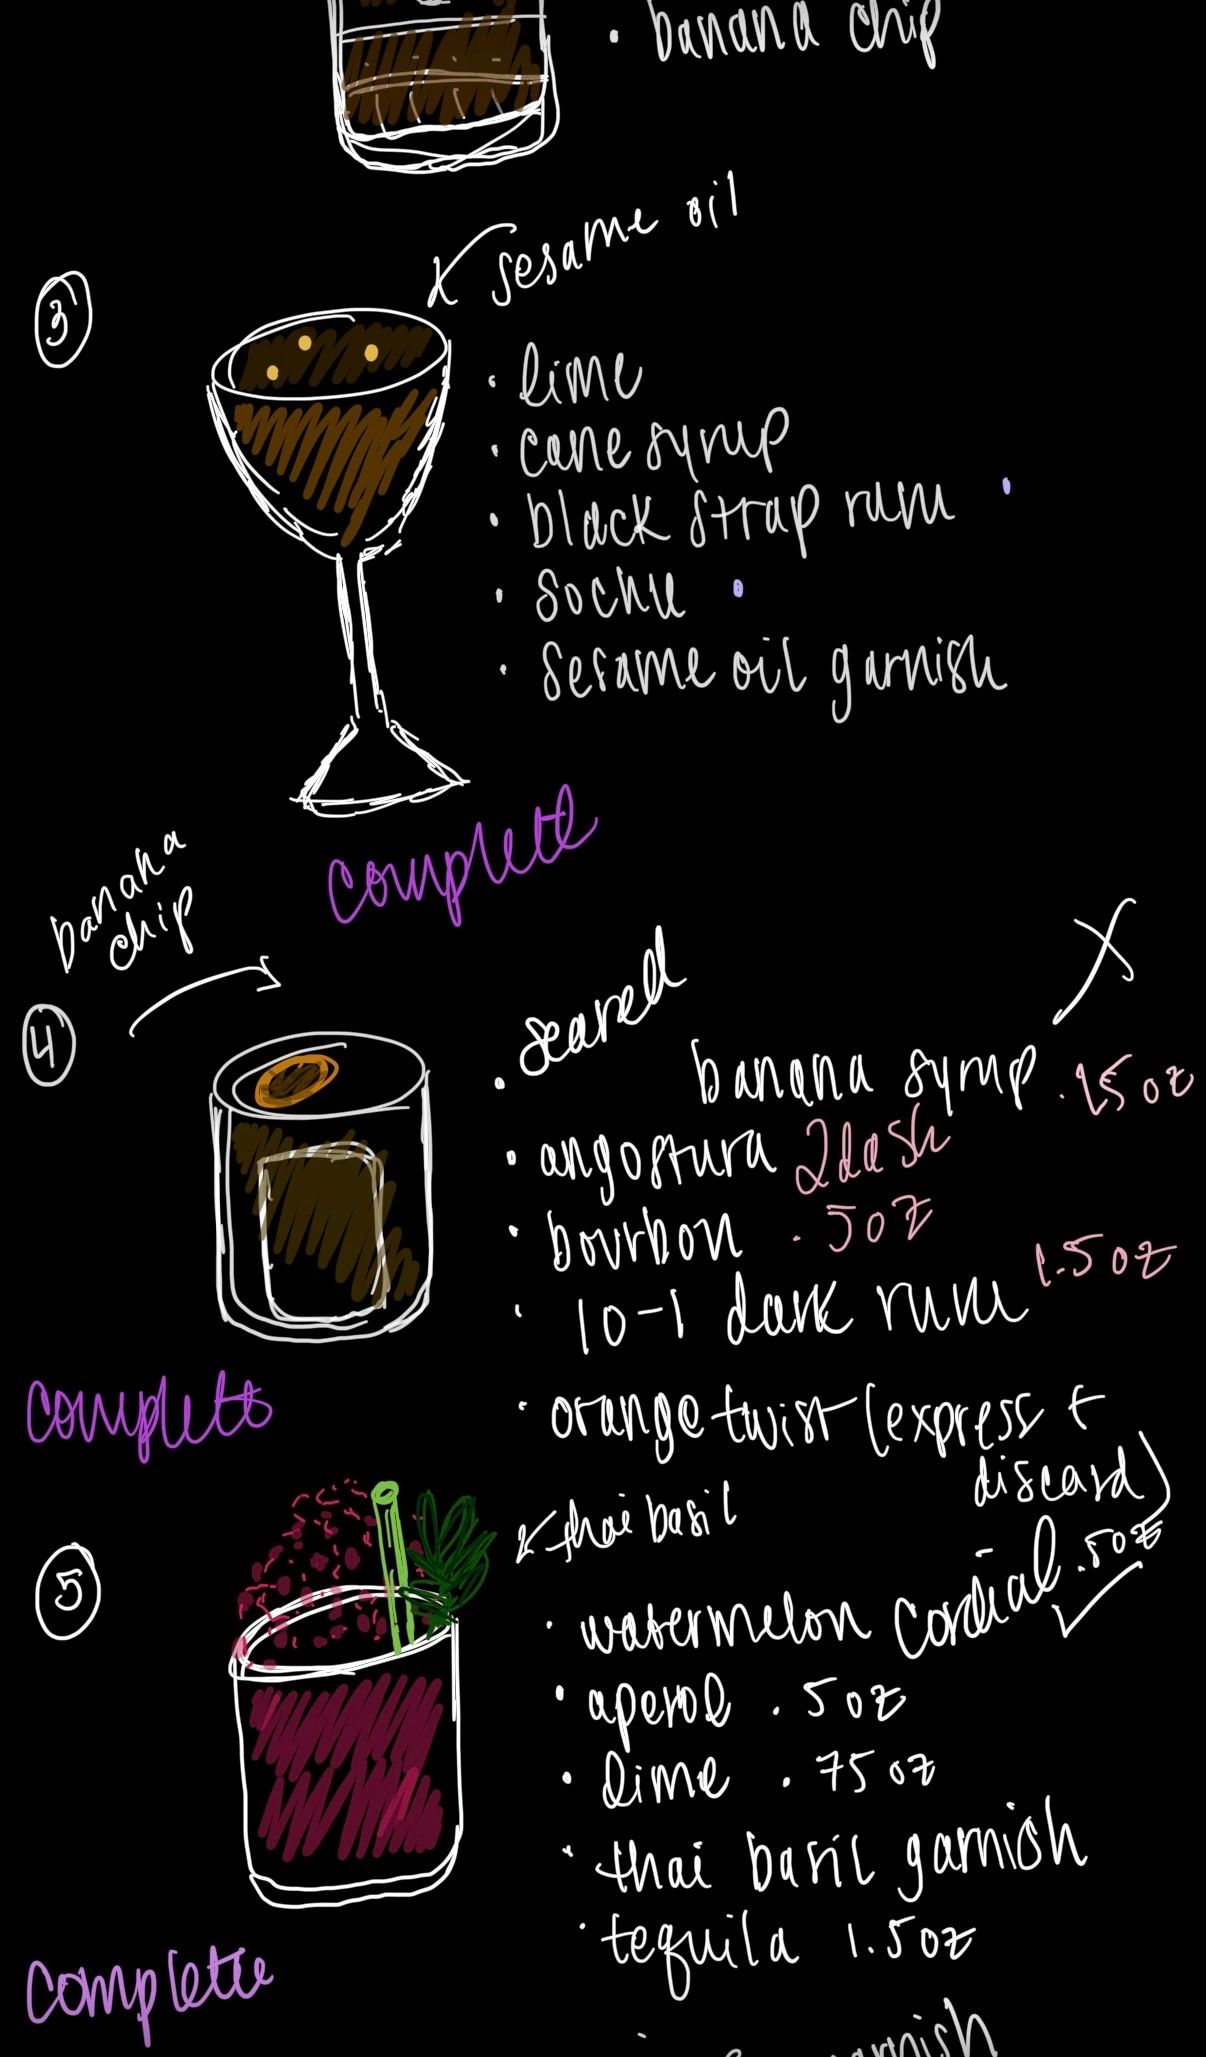 · banana chip
sesame oil
3
· lime
· cane syrup
· black strap rum
· sochu
· sesame oil garnish
complete
banana
chip
4
· seared
banana syrup .25 oz
· angostura 2 dash
· bourbon .5 oz
· 10-1 dark rum 1.5 oz
· orange twist (express +
discard)
complete
thai basil
5
· watermelon cordial .50z
· aperol .5 oz
· lime .75 oz
· thai basil garnish
· tequila 1.5 oz
complete
garnish